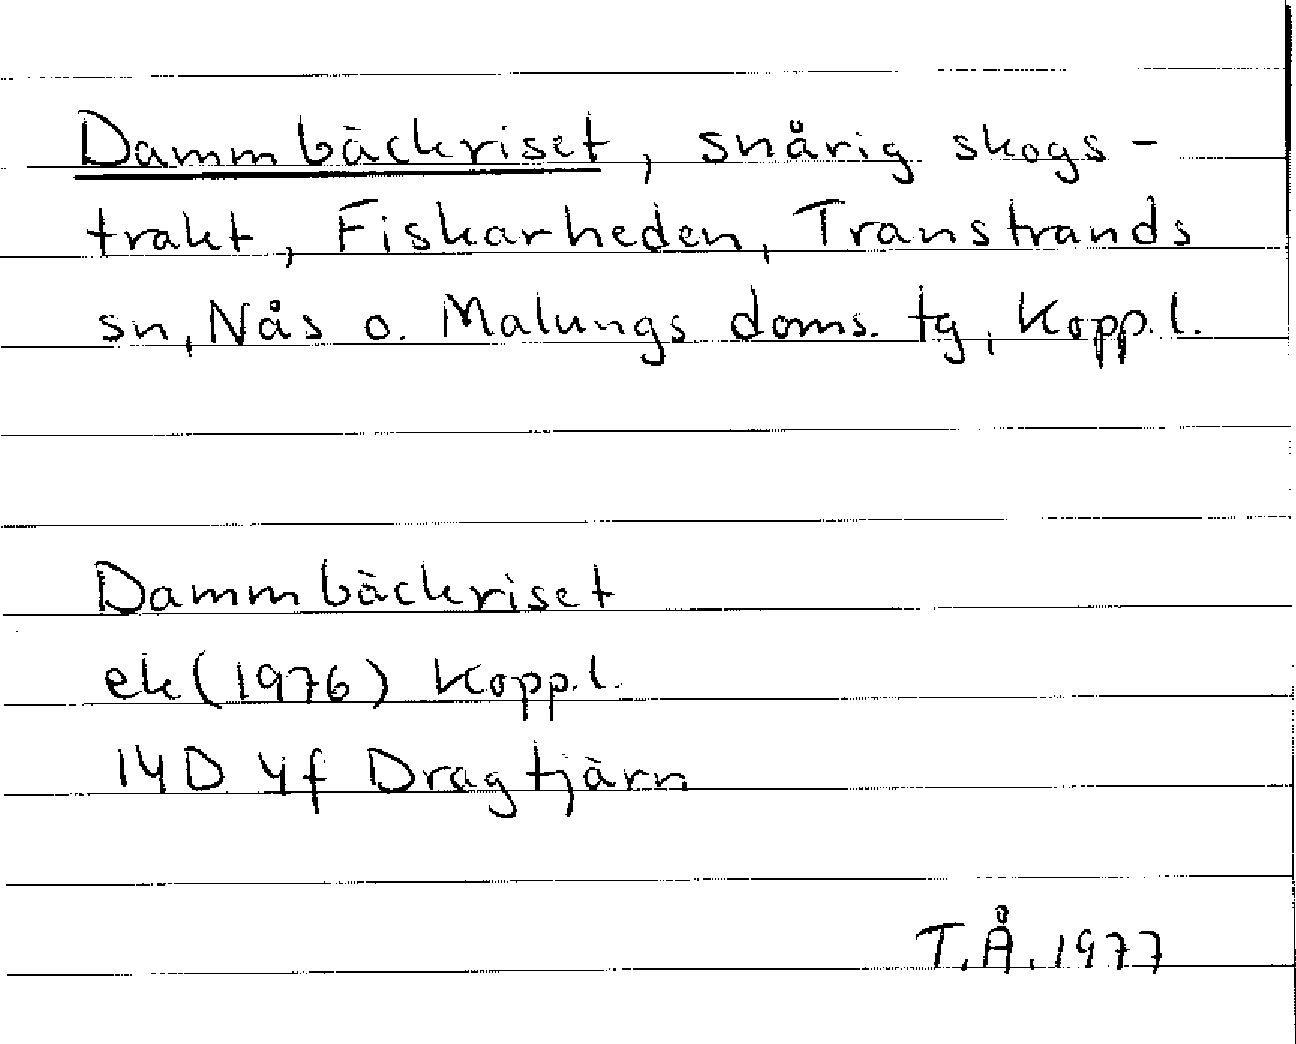 Dammbäckriset, snårig skogs-
trakt, Fiskarheden, Transtrands
sn, Nås o. Malungs doms. tg, Kopp.l.
Dammbäckriset
ek (1976) Kopp.l.
14D 4f Dragtjärn
T.Å. 1977